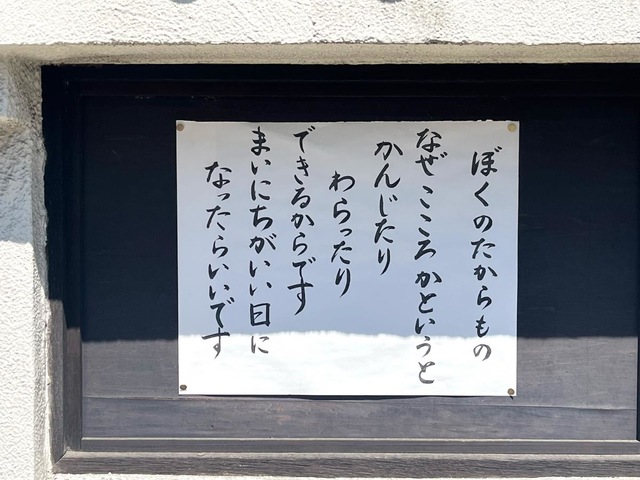 ぼくのたからもの
なぜこころかというと
かんじたり
わらったり
できるからです
まいにちがいい日に
なったらいいです